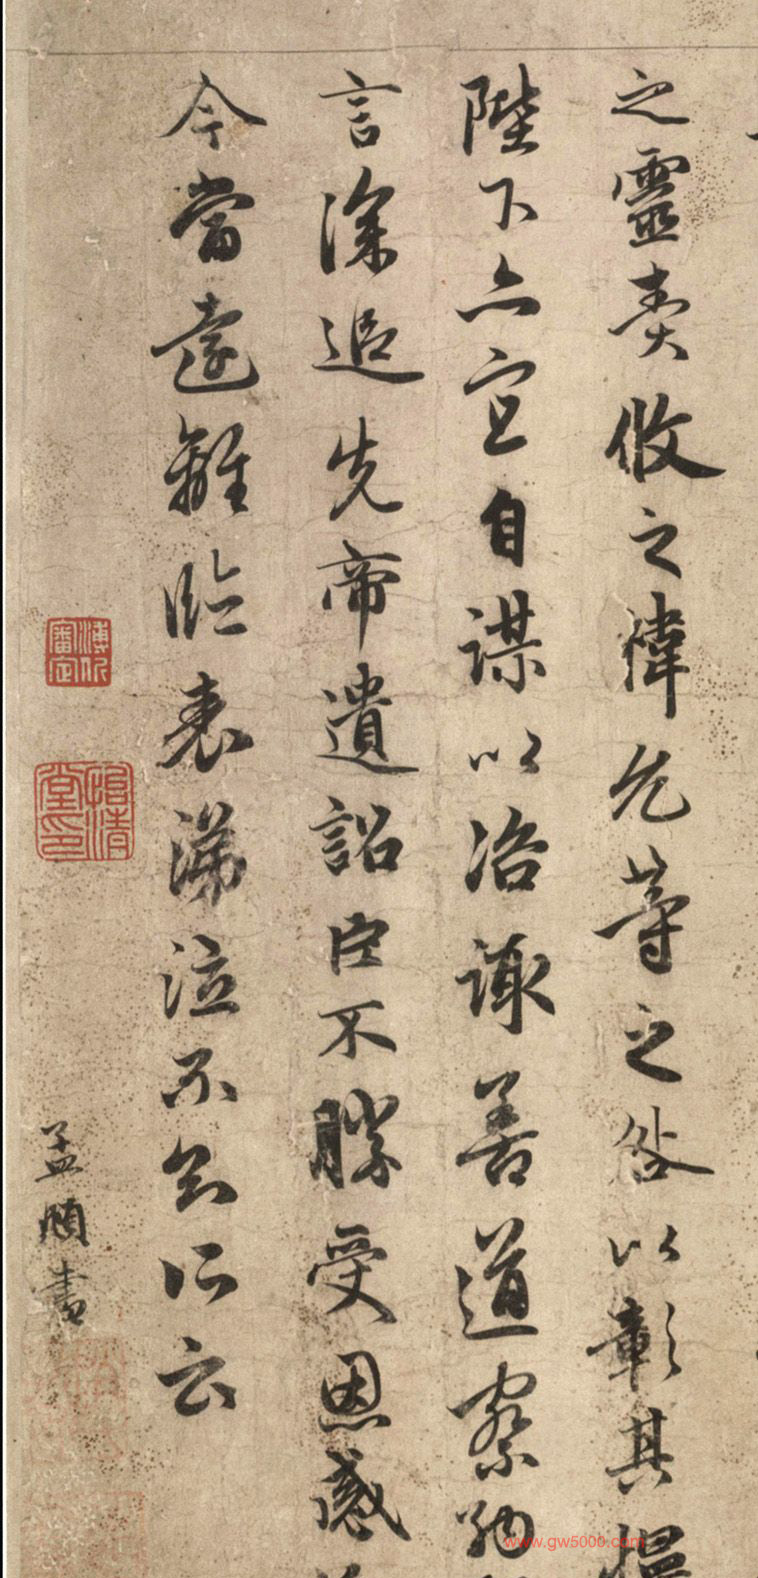 之靈責攸之禕允等之咎以彰其慢
陛下亦宜自謀以咨諏善道察納
言深追先帝遺詔臣不勝受恩感
今當遠離臨表涕泣不知所云
孟頫書
審定
怡清堂印
www.gw5000.com